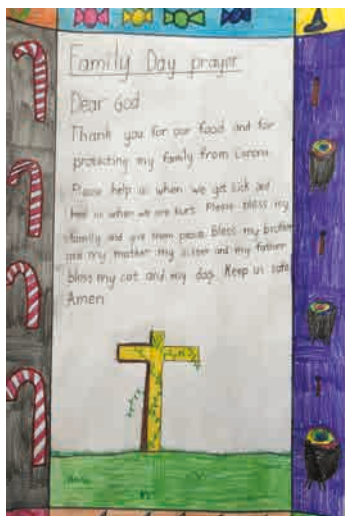 Family Day prayer
Dear God
Thank you for our food and for
protecting my family from corona
Please help us when we get sick and
heal us when we are hurt. Please bless my
family and give them peace. Bless my brother
and my mother my sister and my father
bless my cat and my dog. Keep us safe
Amen